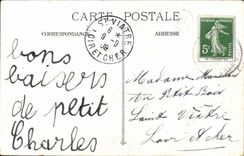 CARTE POSTALE
CORRESPONDANCE
ADRESSE
ST VIATRE
LOIR ET CHER
5c
bons
baisers
de petit
Charles
Madame
au Petit Bois
Saint Viâtre
Loir et Cher